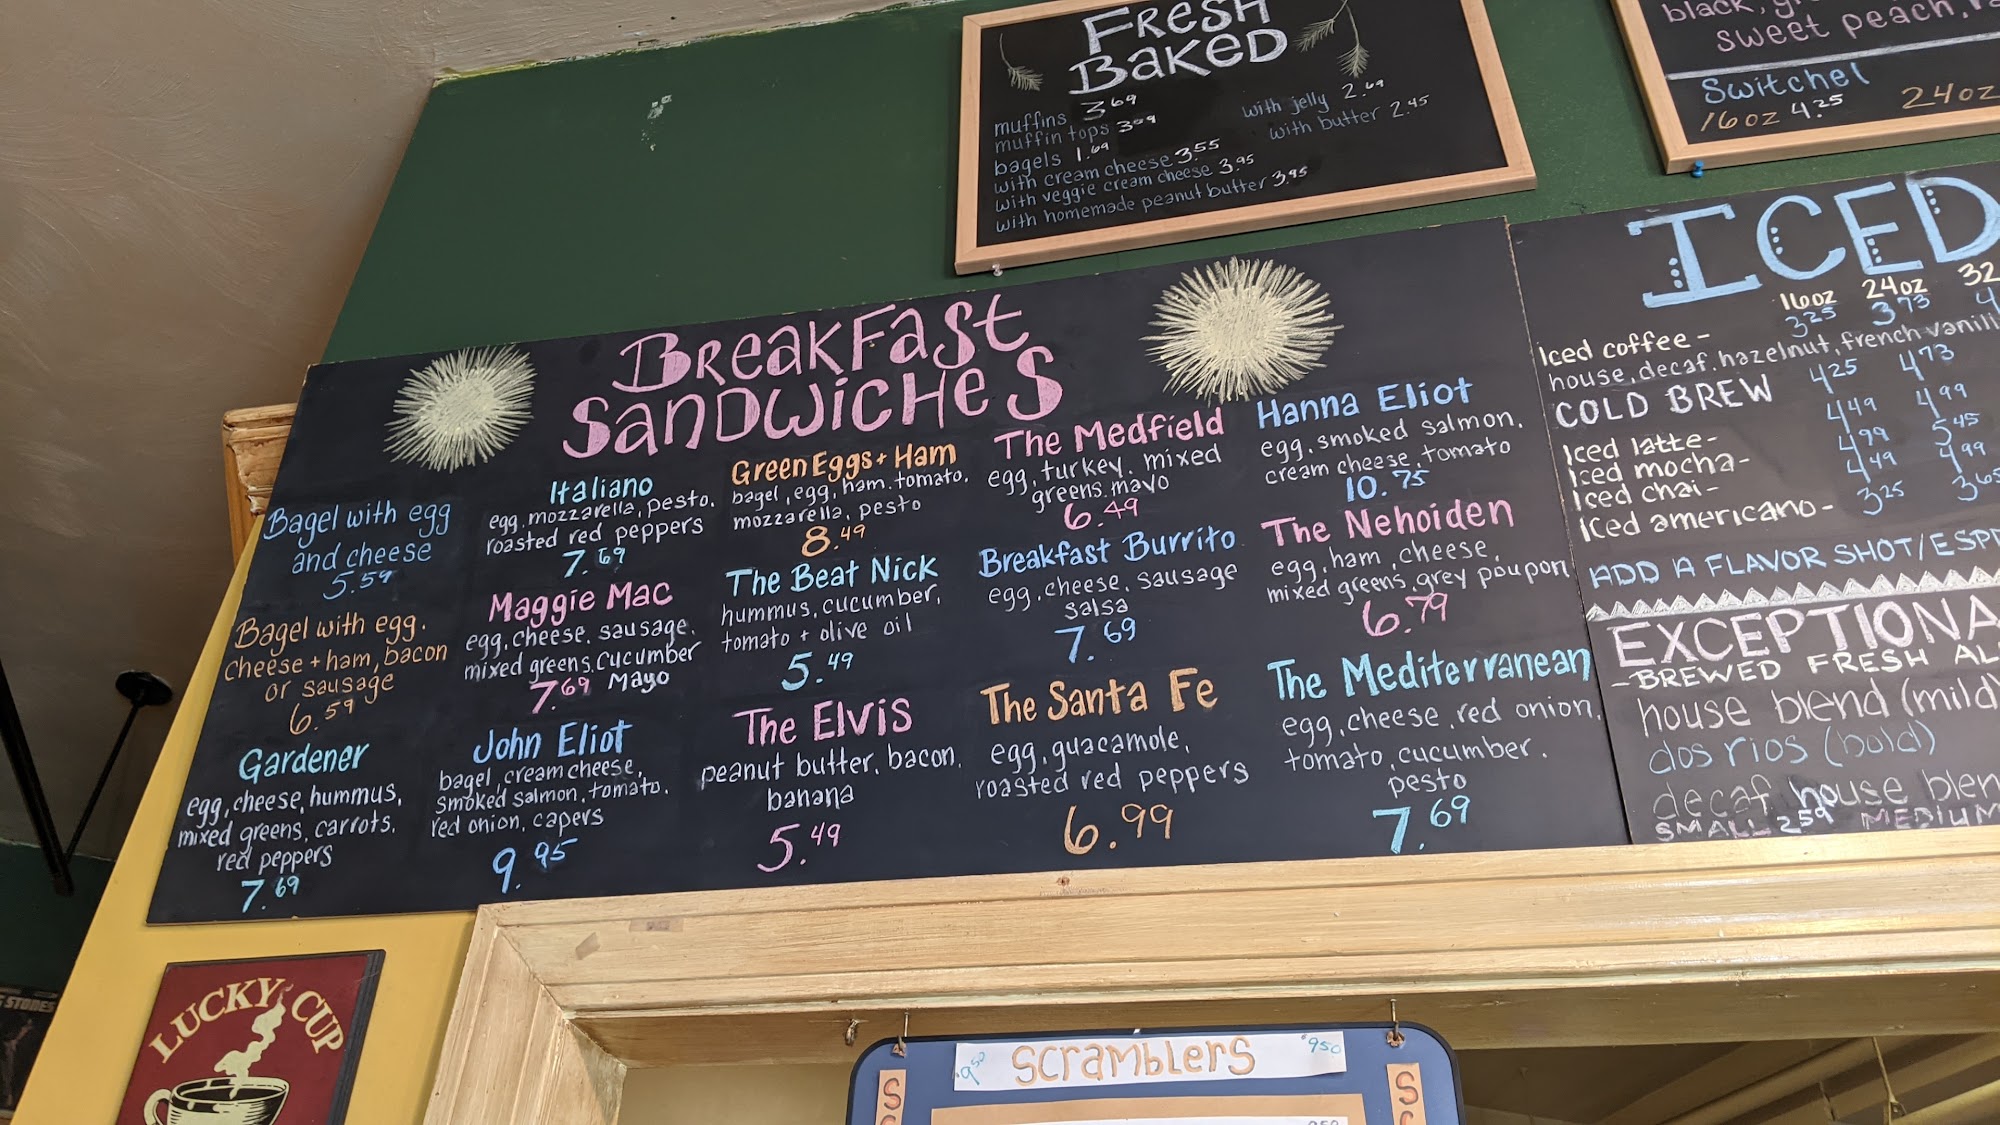 FRESH
BAKED
muffins 3.69
muffin tops 3.09
bagels 1.69
with cream cheese 3.55
with veggie cream cheese 3.95
with homemade peanut butter 3.95
with jelly 2.69
with butter 2.45
sweet peach,
Switchel
16oz 4.25 24oz
BREAKFAST
SANDWICHES
Bagel with egg
and cheese
5.59
Bagel with egg.
cheese + ham, bacon
or sausage
6.59
Gardener
egg, cheese, hummus,
mixed greens, carrots,
red peppers
7.69
Italiano
egg, mozzarella, pesto,
roasted red peppers
7.69
Maggie Mac
egg, cheese, sausage,
mixed greens, cucumber
7.69 Mayo
John Eliot
bagel, cream cheese,
smoked salmon, tomato,
red onion, capers
9.95
Green Eggs + Ham
bagel, egg, ham, tomato,
mozzarella, pesto
8.49
The Beat Nick
hummus, cucumber,
tomato + olive oil
5.49
The Elvis
peanut butter, bacon,
banana
5.49
The Medfield
egg, turkey, mixed
greens, mayo
6.49
Breakfast Burrito
egg, cheese, sausage
salsa
7.69
The Santa Fe
egg, guacamole,
roasted red peppers
6.99
Hanna Eliot
egg, smoked salmon,
cream cheese, tomato
10.75
The Nehoiden
egg, ham, cheese,
mixed greens, grey poupon
6.79
The Mediterranean
egg, cheese, red onion,
tomato, cucumber,
pesto
7.69
ICED
16oz 24oz 32
Iced coffee - 3.25 3.73
house, decaf, hazelnut, french
COLD BREW 4.25 4.73
Iced latte - 4.49 4.99
Iced mocha - 4.99 5.45
Iced chai - 4.49 4.99
Iced americano - 3.25 3.65
ADD A FLAVOR SHOT/
-BREWED FRESH
house blend (mild)
dos rios (bold)
decaf house
SMALL 2.59 MEDIUM
LUCKY CUP
9.50 Scramblers $9.50